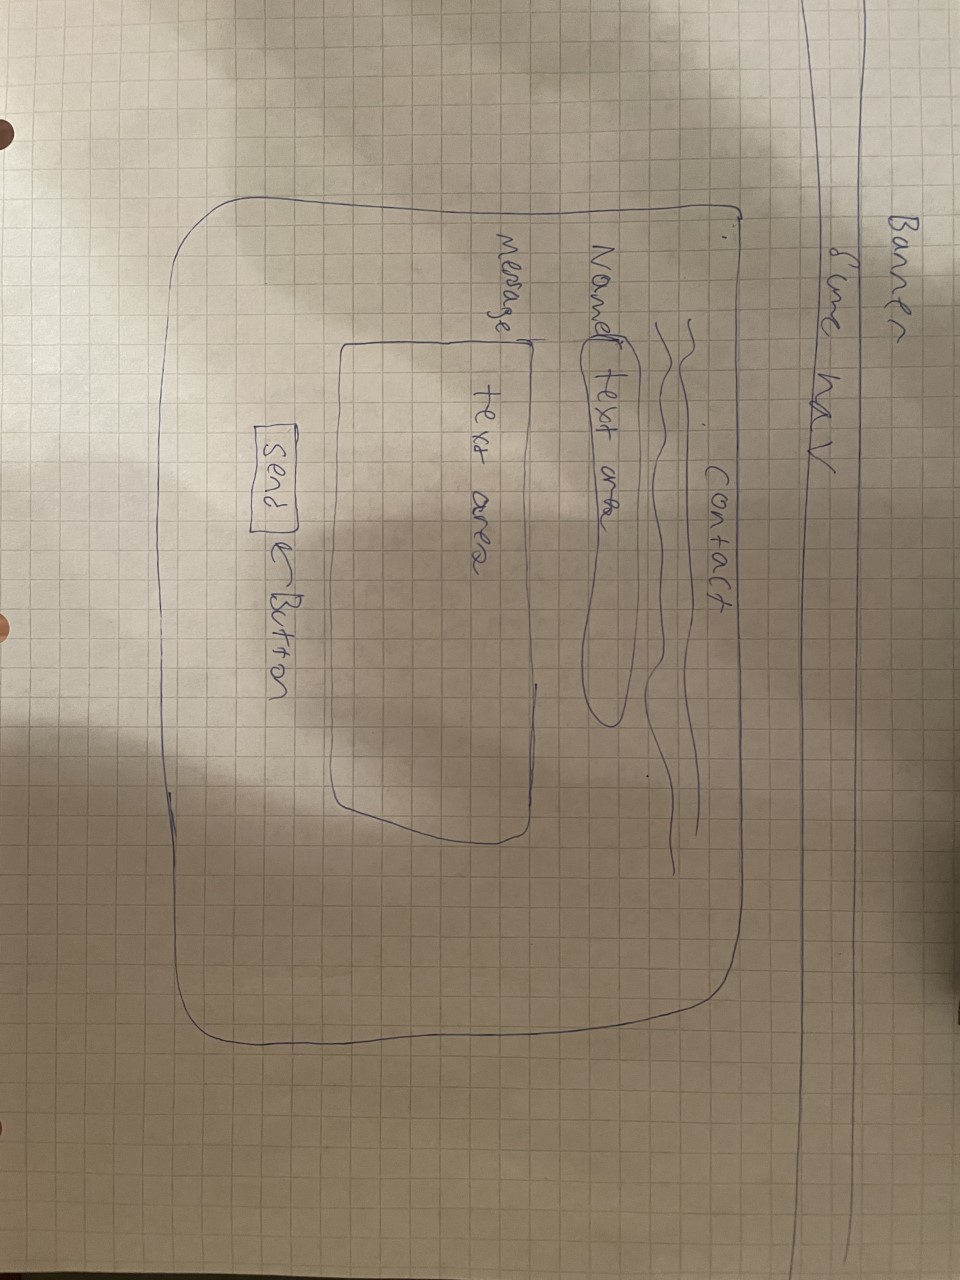 Banner
Same nav
Contact
Name text area
Message
text area
Send ← Button